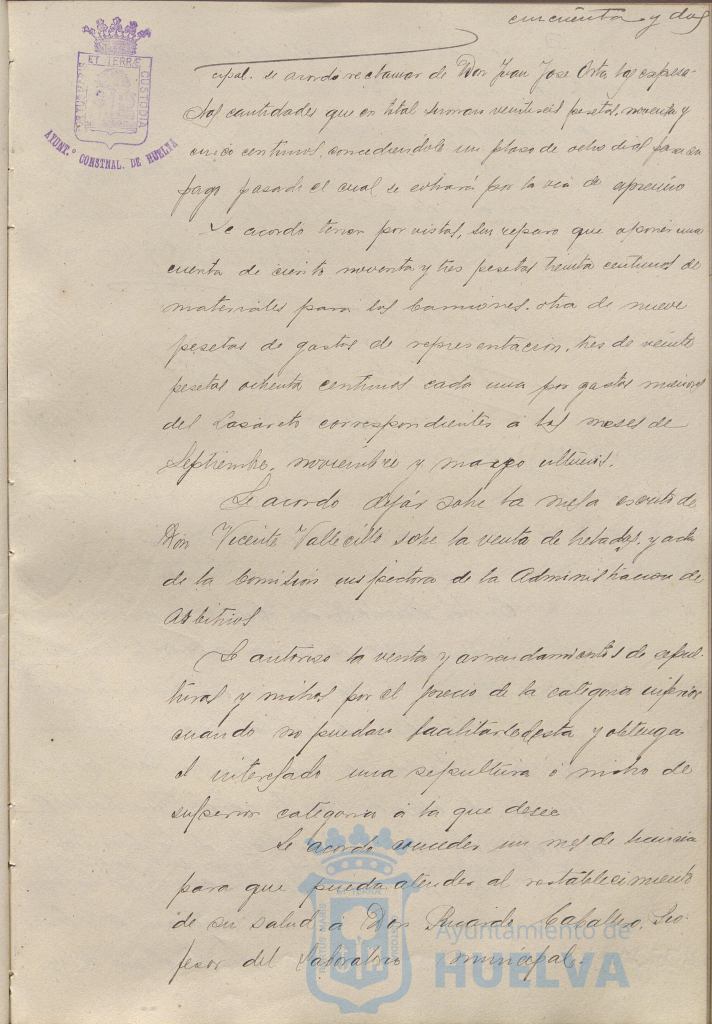 cincuenta y dos
ET TERRÆ
CUSTODIA
AYUNT.º CONSTNAL. DE HUELVA
cipal. se acordó reclamar de Don Juan José Orta, las expresa-
das cantidades que en total suman veintiseis pesetas noventa y
cinco centimos, concediendole un plazo de ocho dias para su
pago pasado el cual se cobrará por la via de apremio
Se acordó tener por vistas, sin reparo que oponer una
cuenta de ciento noventa y tres pesetas treinta centimos de
materiales para los Camiones. otra de nueve
pesetas de gastos de representación, tres de veinte
pesetas ochenta centimos cada una por gastos menores
del Lazareto correspondientes á los meses de
Septiembre, noviembre y marzo ultimos.
Se acordó dejar sobre la mesa escrito de
Don Vicente Vallecillo sobre la venta de helados, y acta
de la Comisión inspectora de la Administración de
Arbitrios
Se autorizó la venta y arrendamientos de sepul-
turas y nichos por el precio de la categoria inferior
cuando no puedan facilitarle de esta y obtenga
el interesado una sepultura ó nicho de
superior categoria á la que desee
Se acordó conceder un mes de licencia
para que pueda atender al restablecimiento
de su salud á Don Ricardo Caballero, Pro-
fesor del Laboratorio municipal.-
Ayuntamiento de
HUELVA